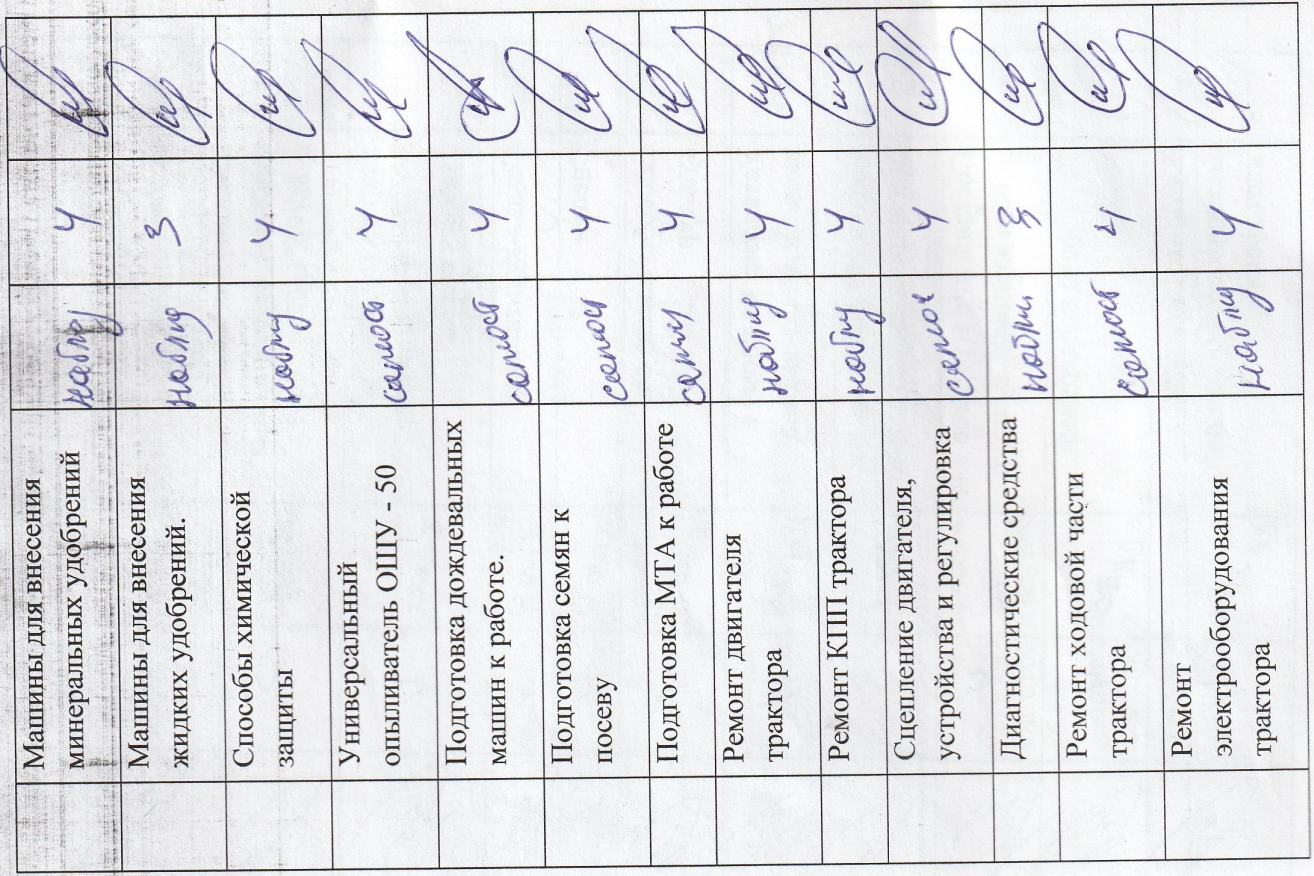 Машины для внесения
минеральных удобрений наблюд 4
Машины для внесения
жидких удобрений. наблюд 3
Способы химической
защиты 4
Универсальный
опыливатель ОШУ - 50 самост 4
Подготовка дождевальных
машин к работе. самост 4
Подготовка семян к
посеву 4
Подготовка МТА к работе 4
Ремонт двигателя
трактора 4
Ремонт КПП трактора 4
Сцепление двигателя,
устройства и регулировка 4
Диагностические средства 3
Ремонт ходовой части
трактора самост 4
Ремонт
электрооборудования
трактора 4